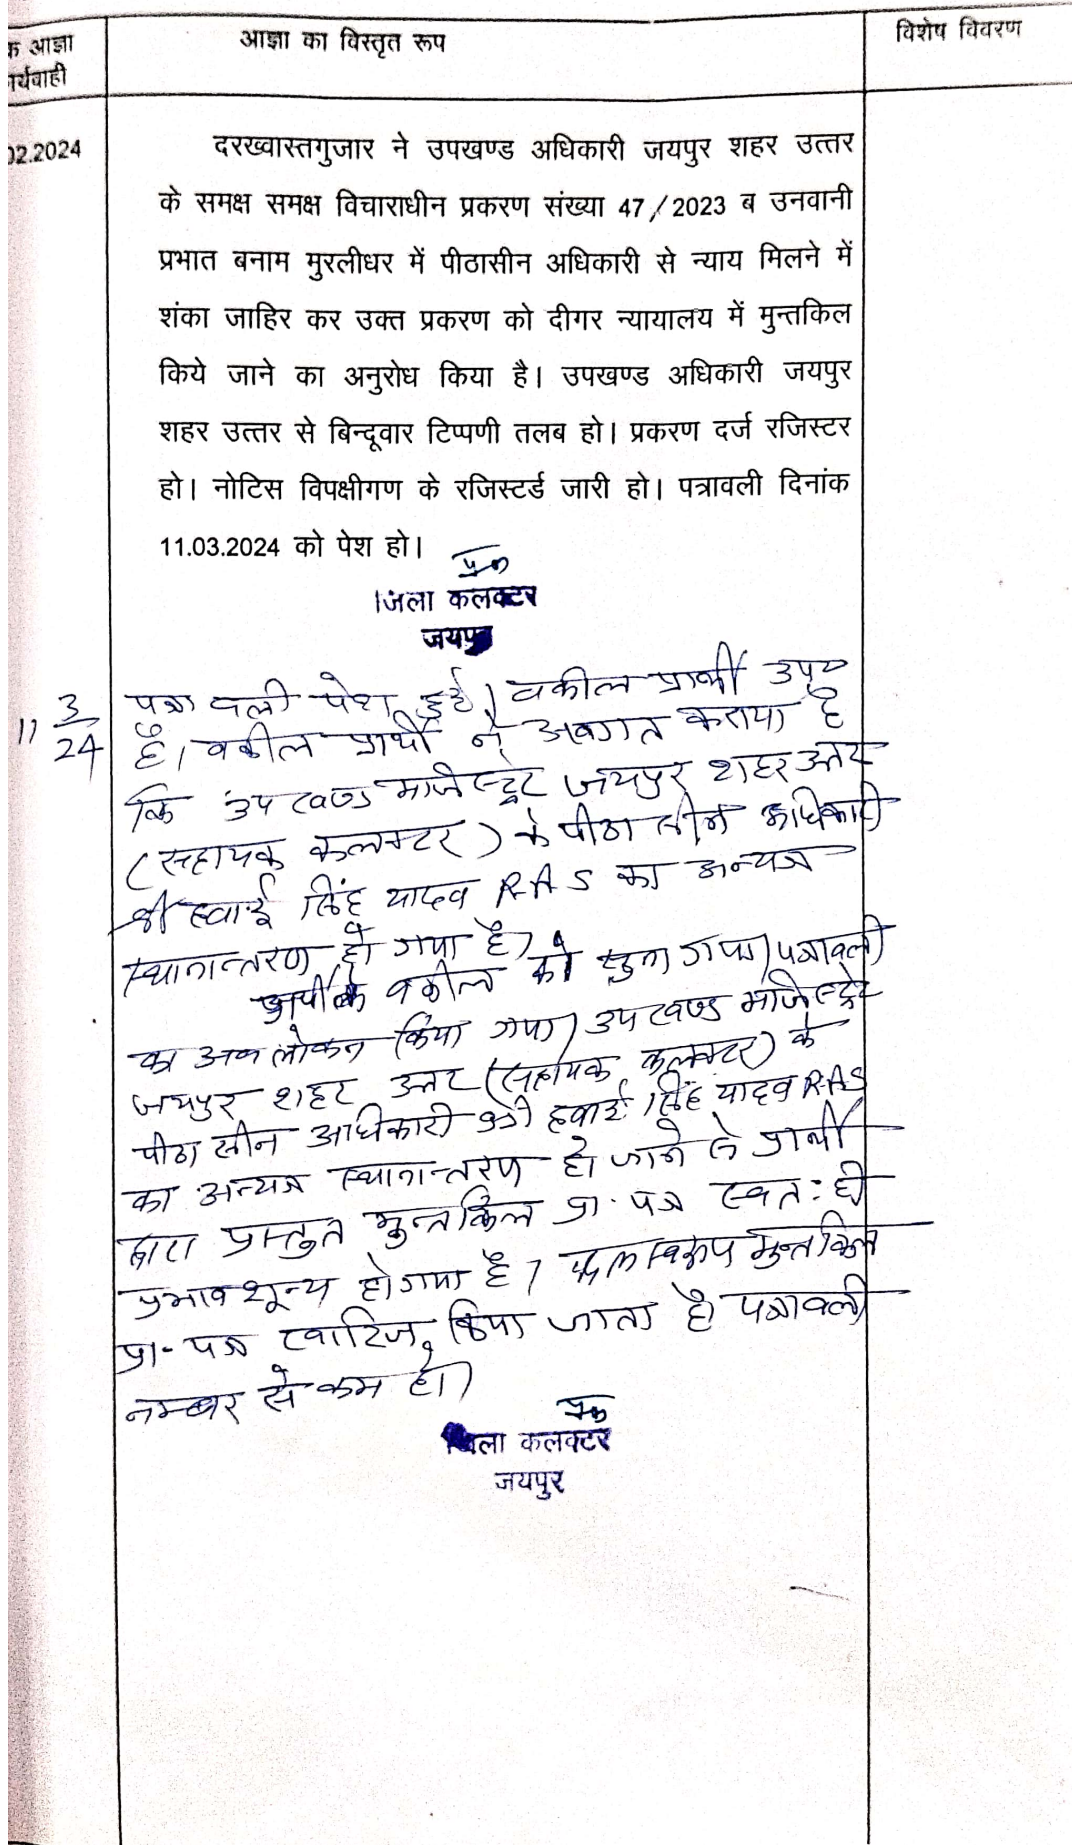 क आज्ञा
र्यवाही
आज्ञा का विस्तृत रूप
विशेष विवरण
02.2024
दरख्वास्तगुजार ने उपखण्ड अधिकारी जयपुर शहर उत्तर
के समक्ष समक्ष विचाराधीन प्रकरण संख्या 47/2023 ब उनवानी
प्रभात बनाम मुरलीधर में पीठासीन अधिकारी से न्याय मिलने में
शंका जाहिर कर उक्त प्रकरण को दीगर न्यायालय में मुन्तकिल
किये जाने का अनुरोध किया है। उपखण्ड अधिकारी जयपुर
शहर उत्तर से बिन्दूवार टिप्पणी तलब हो। प्रकरण दर्ज रजिस्टर
हो। नोटिस विपक्षीगण के रजिस्टर्ड जारी हो। पत्रावली दिनांक
11.03.2024 को पेश हो।
जिला कलक्टर
जयपुर
11 3/24
पत्रावली पेश हुई। वकील प्रार्थी उप०
है। वकील प्रार्थी ने अवगत कराया है
कि उपखण्ड मजिस्ट्रेट जयपुर शहर उत्तर
(सहायक कलक्टर) के पीठासीन अधिकारी
श्री हवाई सिंह यादव R.A.S का अन्यत्र
स्थानान्तरण हो गया है।
प्रार्थी के वकील को सुना गया। पत्रावली
का अवलोकन किया गया। उपखण्ड मजिस्ट्रेट
जयपुर शहर उत्तर (सहायक कलक्टर) के
पीठासीन अधिकारी श्री हवाई सिंह यादव R.A.S
का अन्यत्र स्थानान्तरण हो जाने से प्रार्थी
द्वारा प्रस्तुत मुन्तकिल प्रा. पत्र स्वत: ही
प्रभावशून्य हो गया है। फलस्वरूप मुन्तकिल
प्रा- पत्र खारिज किया जाता है। पत्रावली
नम्बर से कम हो।
जिला कलक्टर
जयपुर